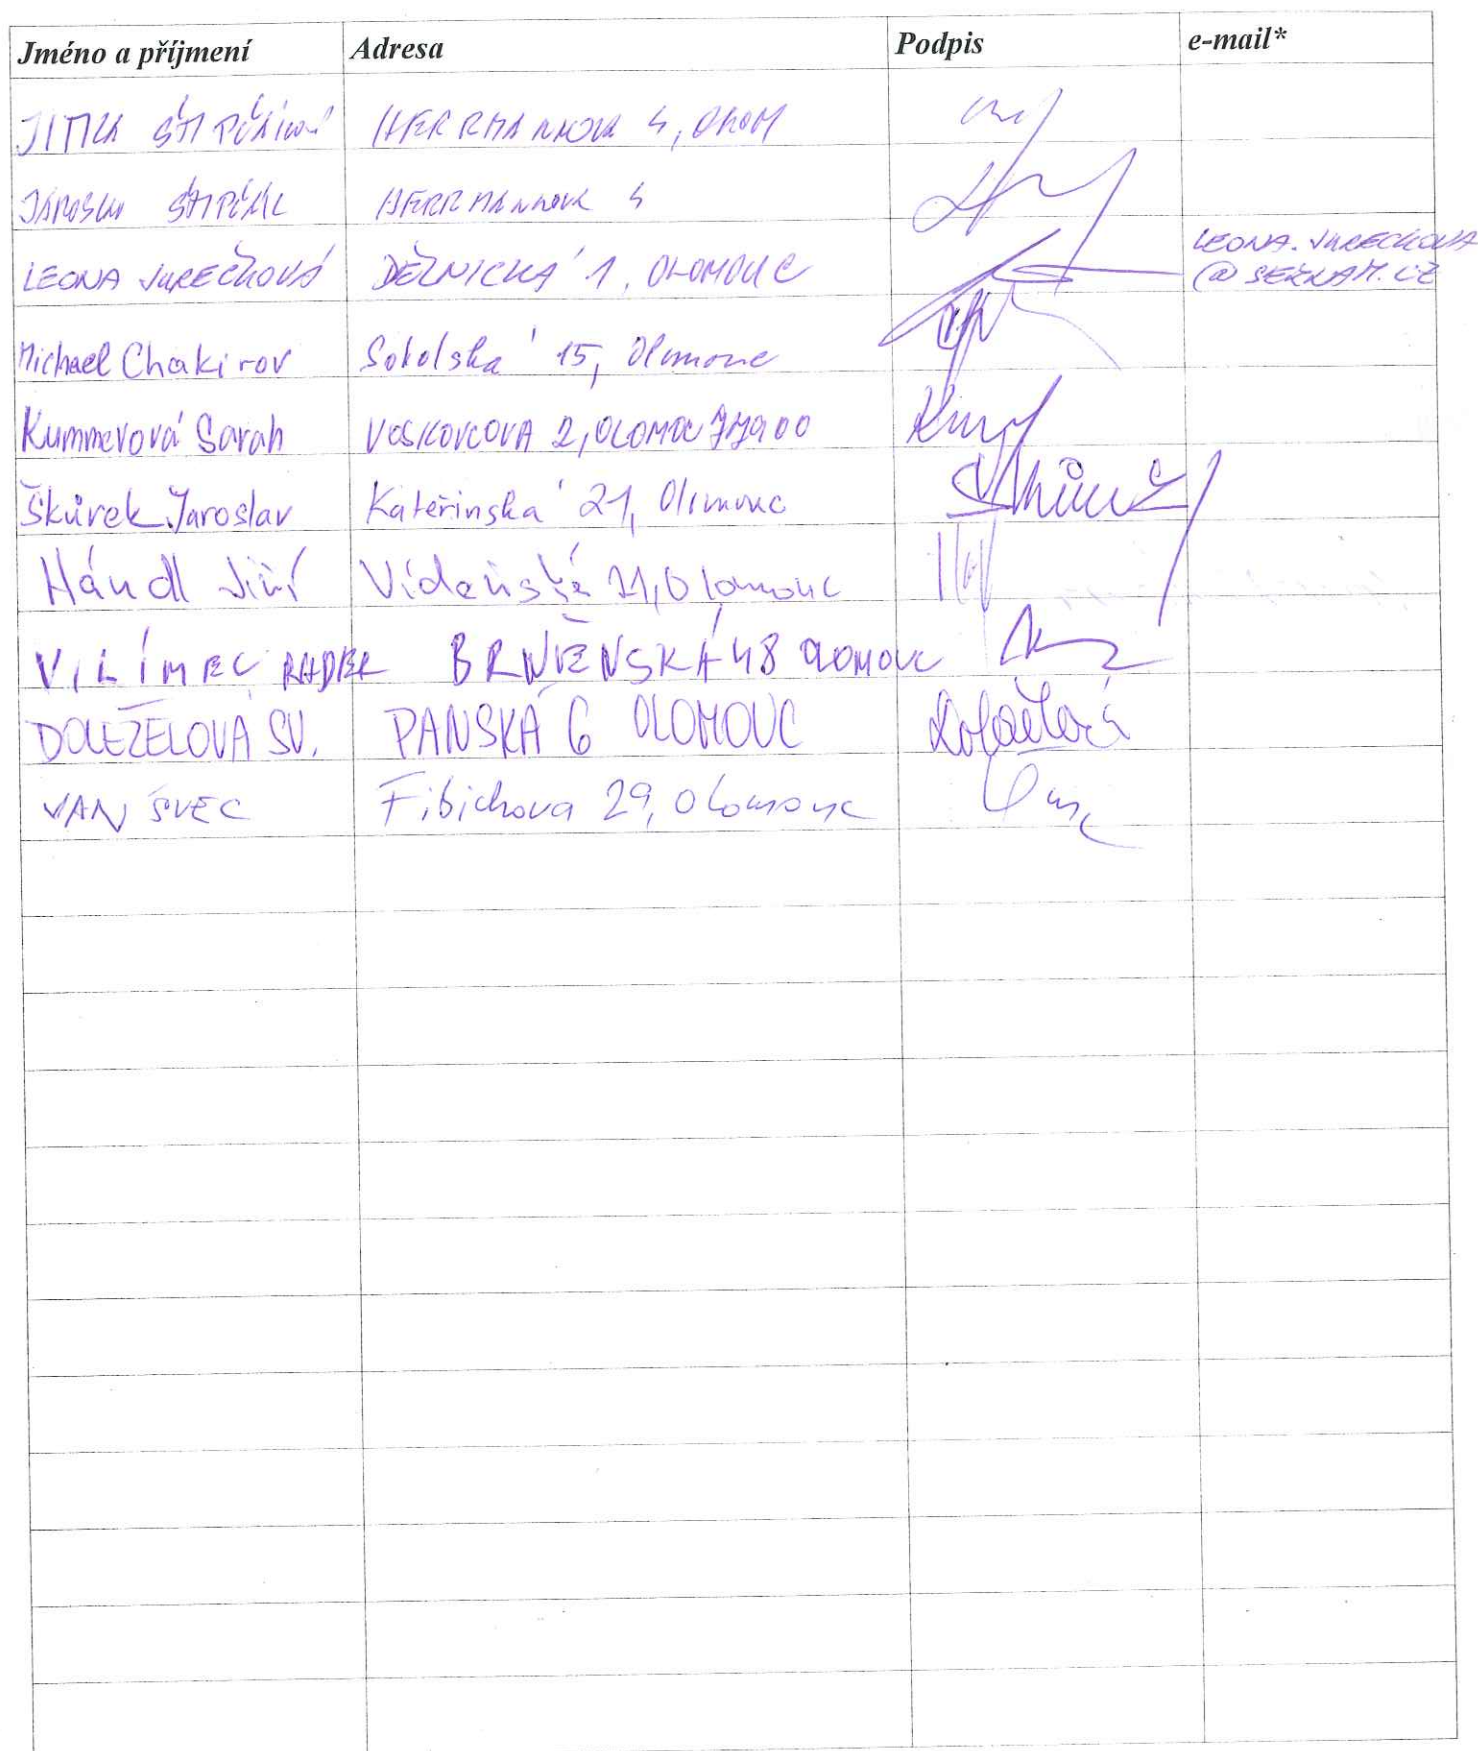 Jméno a příjmení Adresa Podpis e-mail*
JITKA HERRMANNOVA 4,
HERRMANNOVA 4
LEONA JUREČKOVÁ DĚLNICKÁ 1, OLOMOUC LEONA.JURECKOVA
@SEZNAM.CZ
Michael Chakirov Sokolská 15, Olomouc
Kummerová Sarah VOSKOVCOVA 2, OLOMOUC 77900
Škůrek Jaroslav Kateřinská 21, Olomouc
Hándl Jiří Vídeňská 21, Olomouc
VILÍMEC RADEK BRNĚNSKÁ 48 OLOMOUC
DOLEŽELOVÁ SV. PANSKÁ 6 OLOMOUC
JAN ŠVEC Fibichova 29, Olomouc